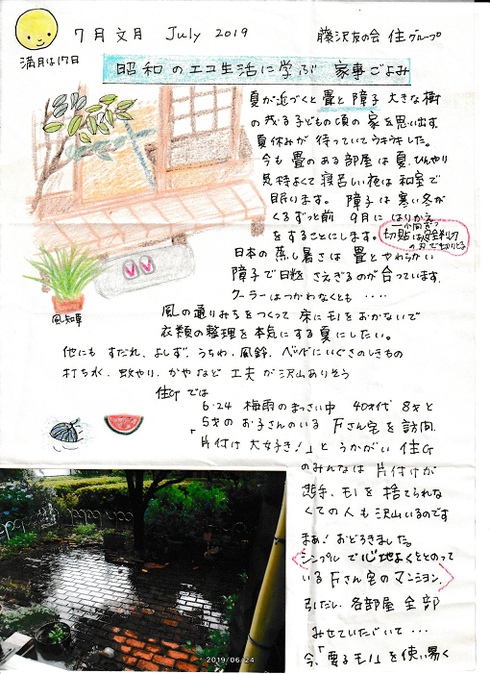 7月 文月 July 2019
藤沢友の会 住グループ
満月は17日
昭和のエコ生活に学ぶ 家事ごよみ
夏が近づくと 畳と障子 大きな樹
の残る子どもの頃の家を思い出す。
夏休みが待っていてウキウキした。
今も畳のある部屋は夏、ひんやり
気持よくて寝苦しい夜は和室で
眠ります。 障子は寒い冬が
くるずっと前 9月にはりかえ
をすることにします。
一小間ずつ
切貼は
日本の蒸し暑さは畳とやわらかい
障子で日射さえぎるのが合っています。
クーラーはつかわなくとも ‥‥
風の通りみちをつくって 床にモノをおかないで
衣類の整理を本気にする夏にしたい。
風知草
他にも すだれ、よしず、うちわ、風鈴、ベッドにいぐさのしきもの
打ち水、蚊やり、かやなど 工夫が沢山ありそう
住Gでは
6・24 梅雨のまっさい中 40才代 8才と
5才のお子さんのいる Fさん宅を訪問。
「片付け 大好き!」とうかがい 住G
のみんなは 片付けが
苦手、モノを捨てられな
くての人も沢山いるのです
まあ!おどろきました。
シンプルで心地よくととのって
いるFさん宅のマンション。
引だし 各部屋 全部
みせていただいて・・・
今、「要るモノ」を使い易く
2019/06/24